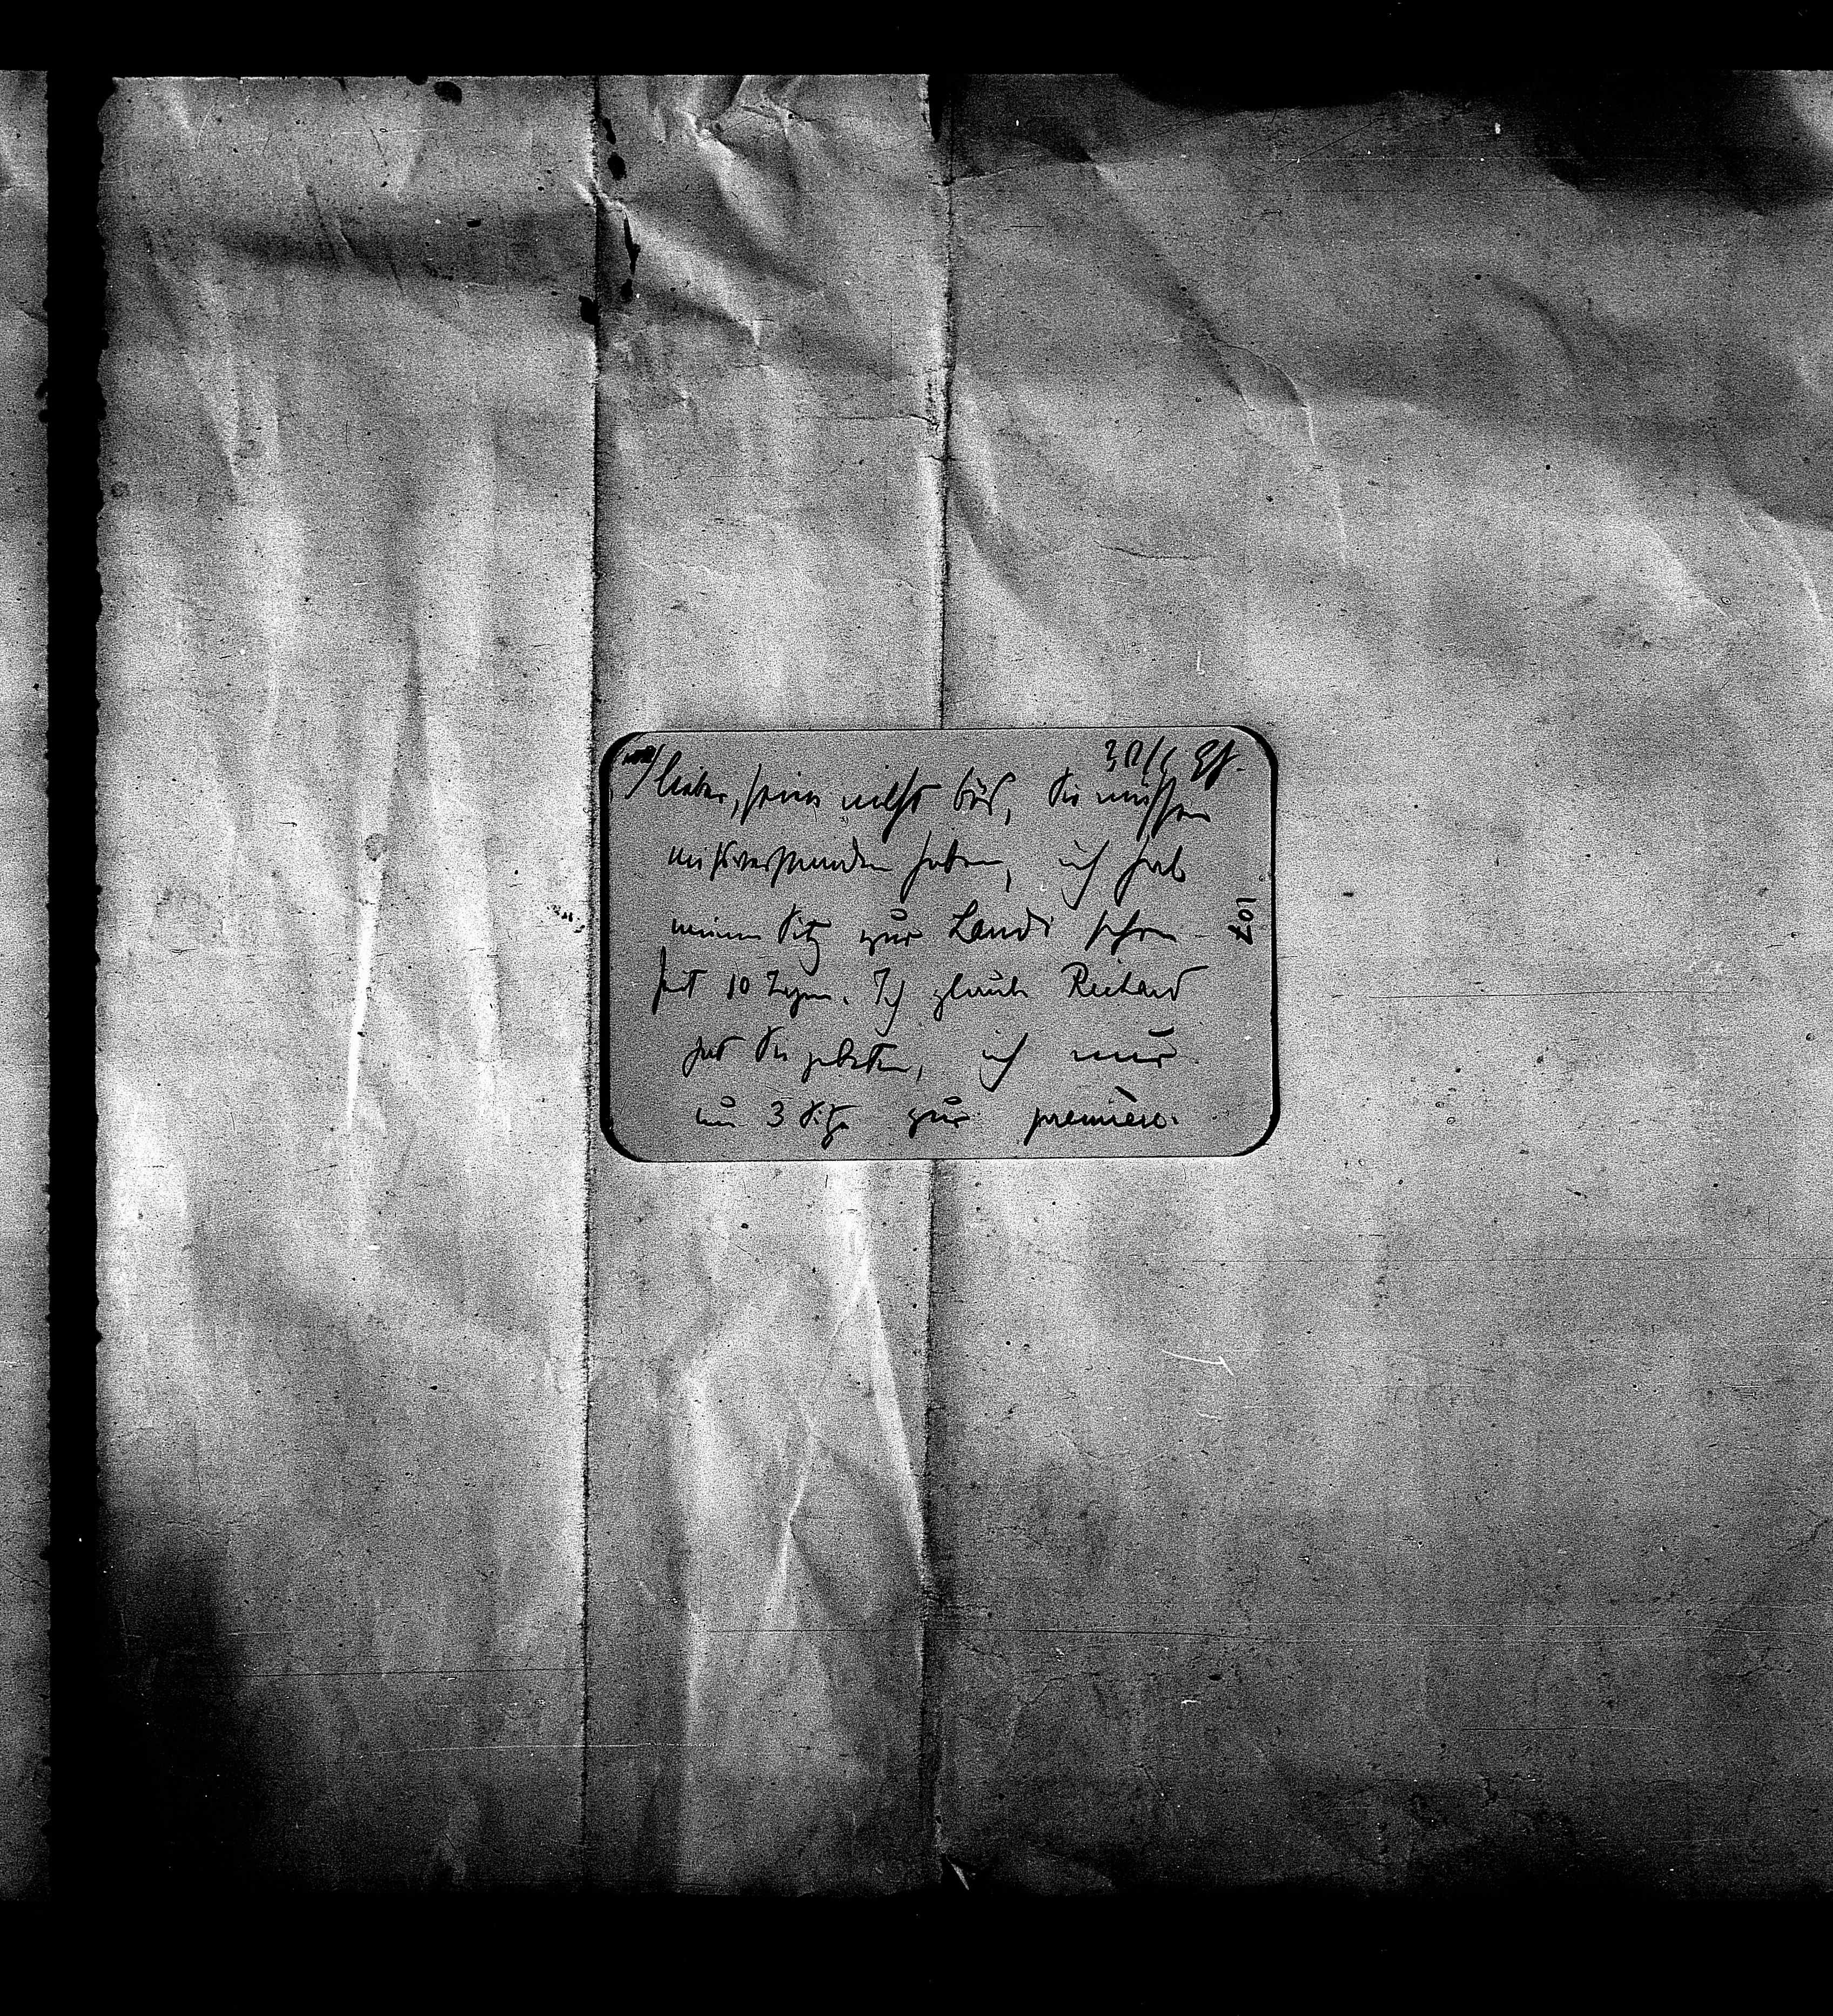 30/1 97.
lieber, seien nicht bös, Sie müssen
missverstanden haben, ich hab
meinen Sitz zur Landi schon
seit 10 Tagen. Ich glaube Richard
hat Sie gebeten, ich nur
um 3 Sitze zur première.
107